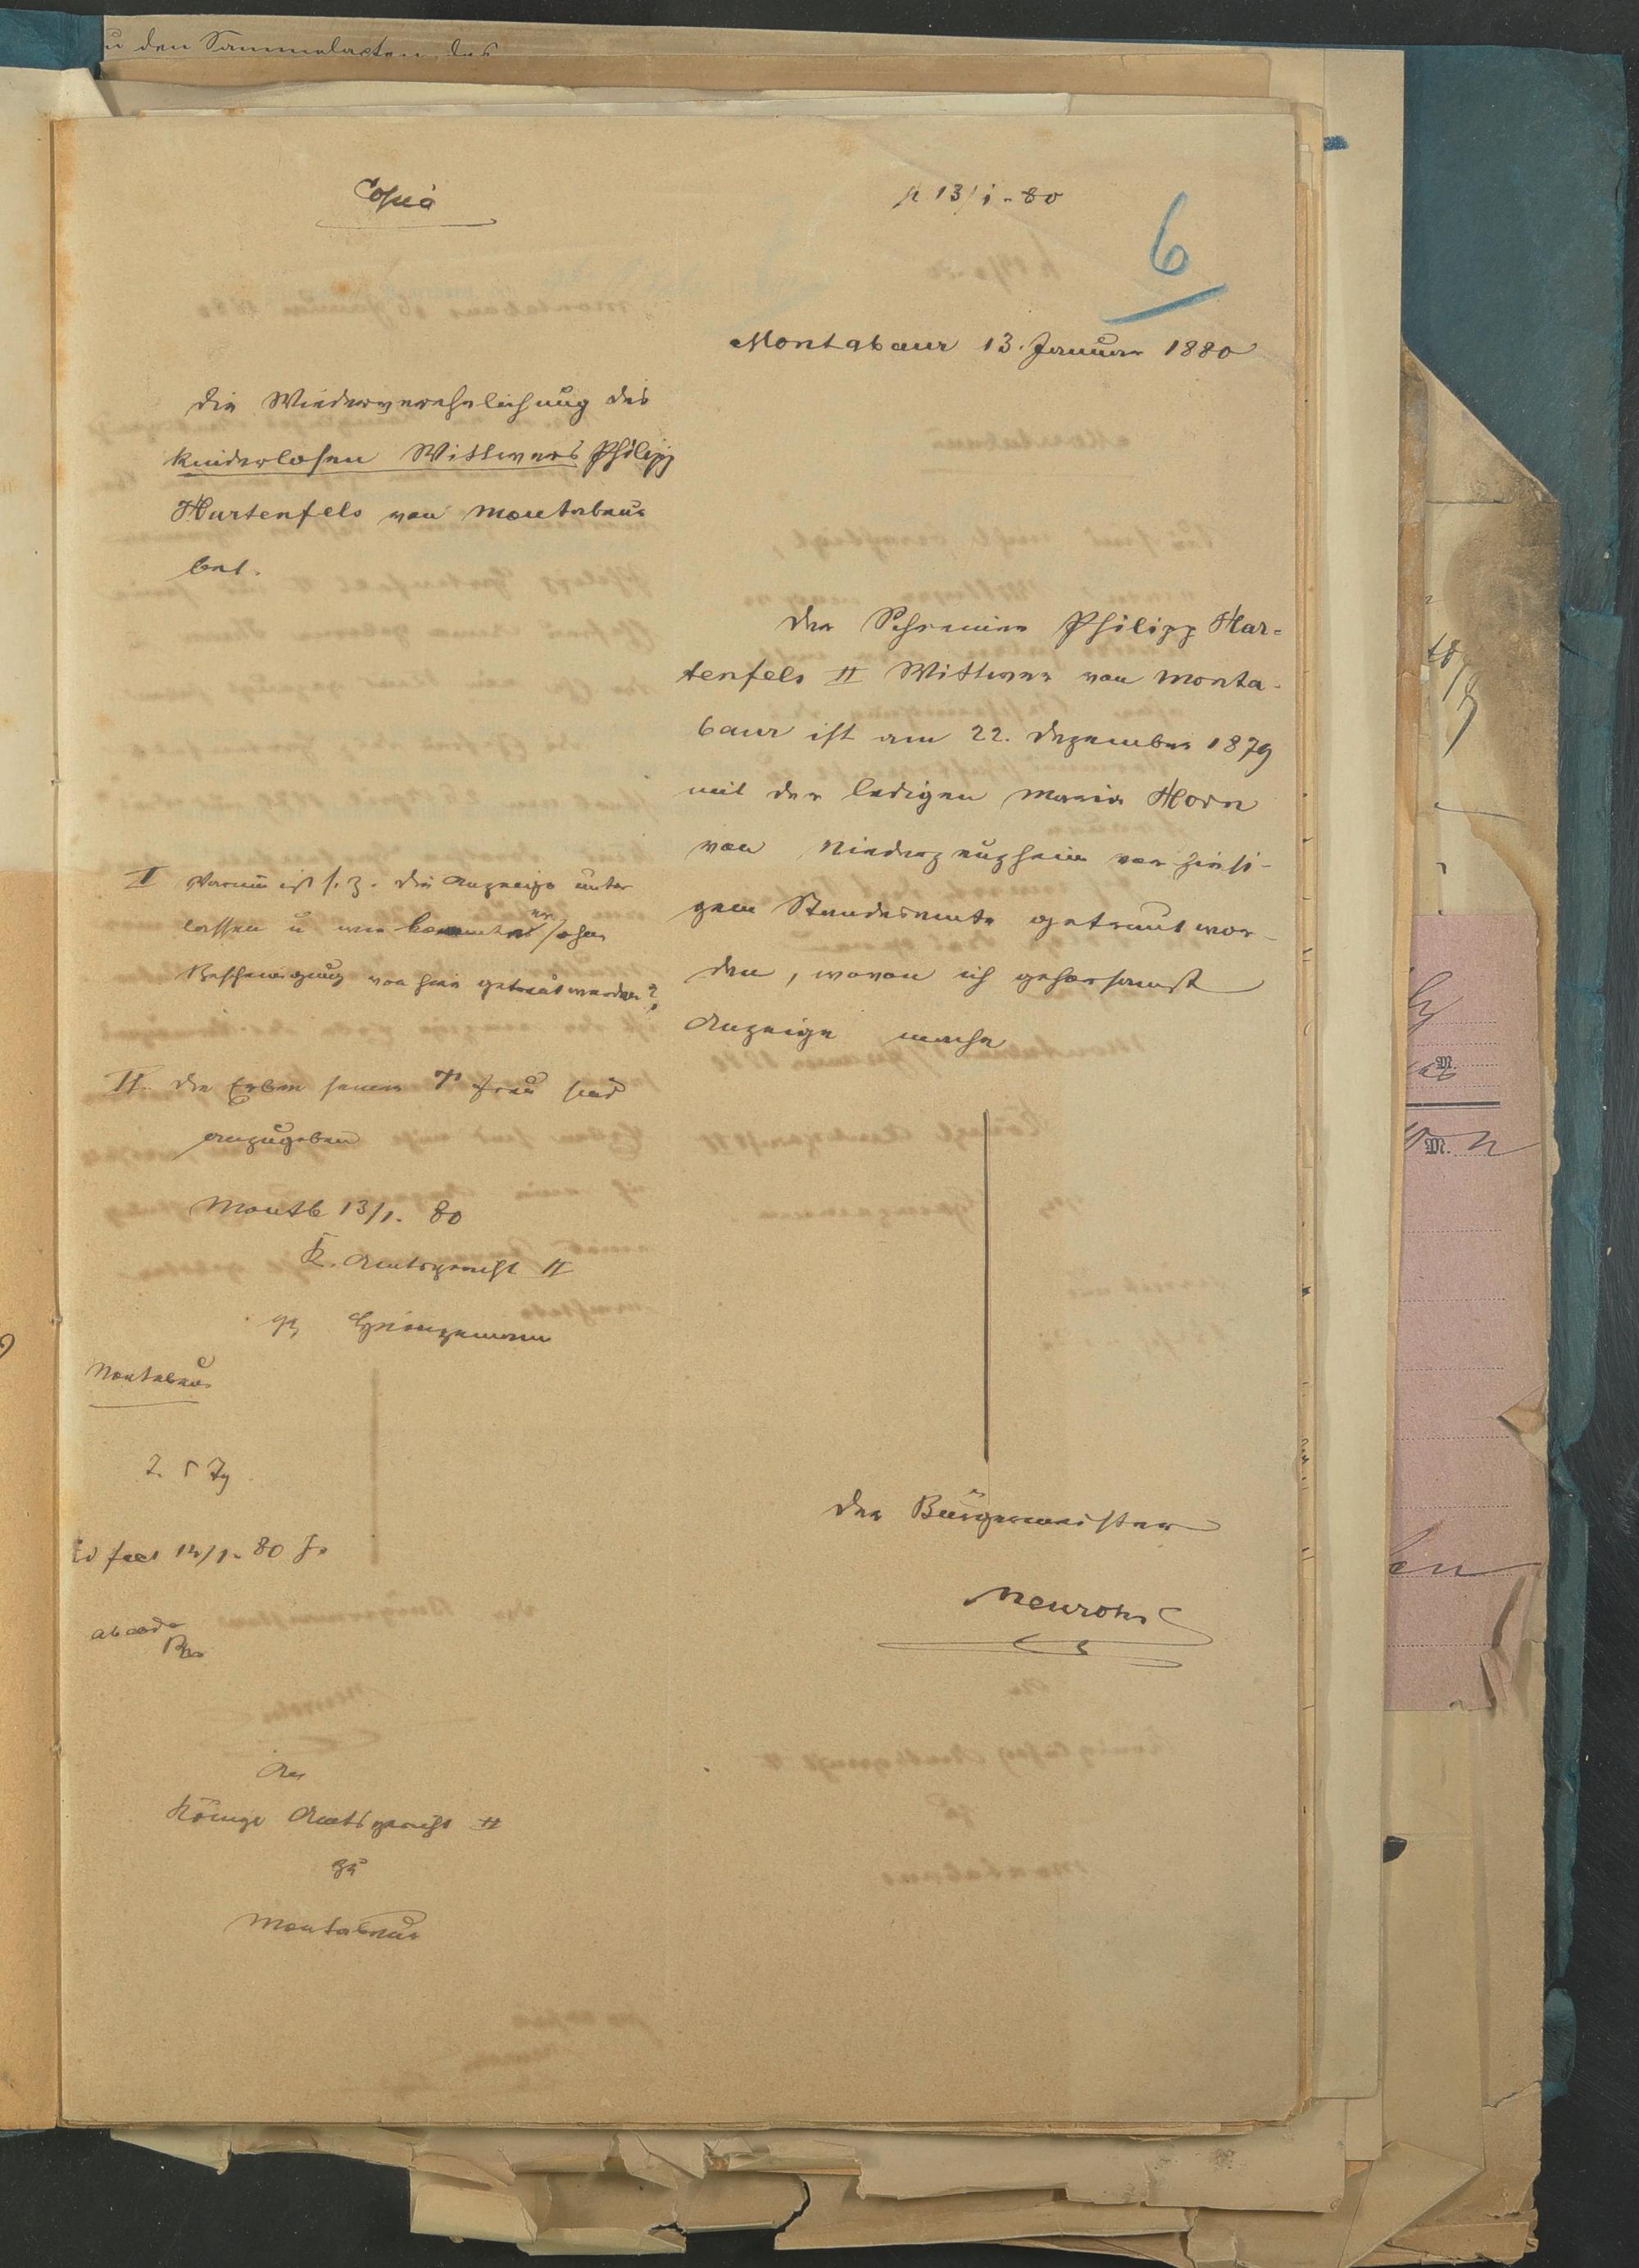 u den Sammelacten des
Copia
p 13/1. 80
6
Montabaur 13. Januar 1880
Die Wiederverehelichung des
kinderlosen Wittwers Philipp
Hartenfels von Montabaur
betr.
Der Schreiner Philipp Har-
tenfels II Wittwer von Monta-
baur ist am 22. Dezember 1879
mit der ledigen Maria Horn
von Niederzeuzheim vor hiesi-
gem Standesamte getraut wor-
den, wovon ich gehorsamst
Anzeige mache
I Warum ist s. Z. die Anzeige unter
lassen u wie konnte er ohne
Bescheinigung von hier getraut werden?
II. Die Erben seiner † Frau sind
anzugeben
Montb 13/1. 80
K. Amtsgericht II
gz
Montabaur
2. 5 Tg
14/1. 80
Der Bürgermeister
Neuroth
An
Königl Amtsgericht II
zu
Montabaur